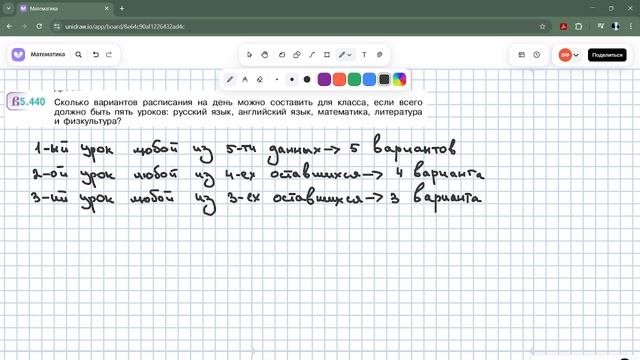 Математика
unidraw.io/app/board/8e64c90af1226432ad4c
Математика
T
Поделиться
5.440
Сколько вариантов расписания на день можно составить для класса, если всего
должно быть пять уроков: русский язык, английский язык, математика, литература
и физкультура?
1-ый урок любой из 5-ти данных→ 5 вариантов
2-ой урок любой из 4-ех оставшихся→ 4 варианта
3-ий урок любой из 3-ех оставшихся→ 3 варианта